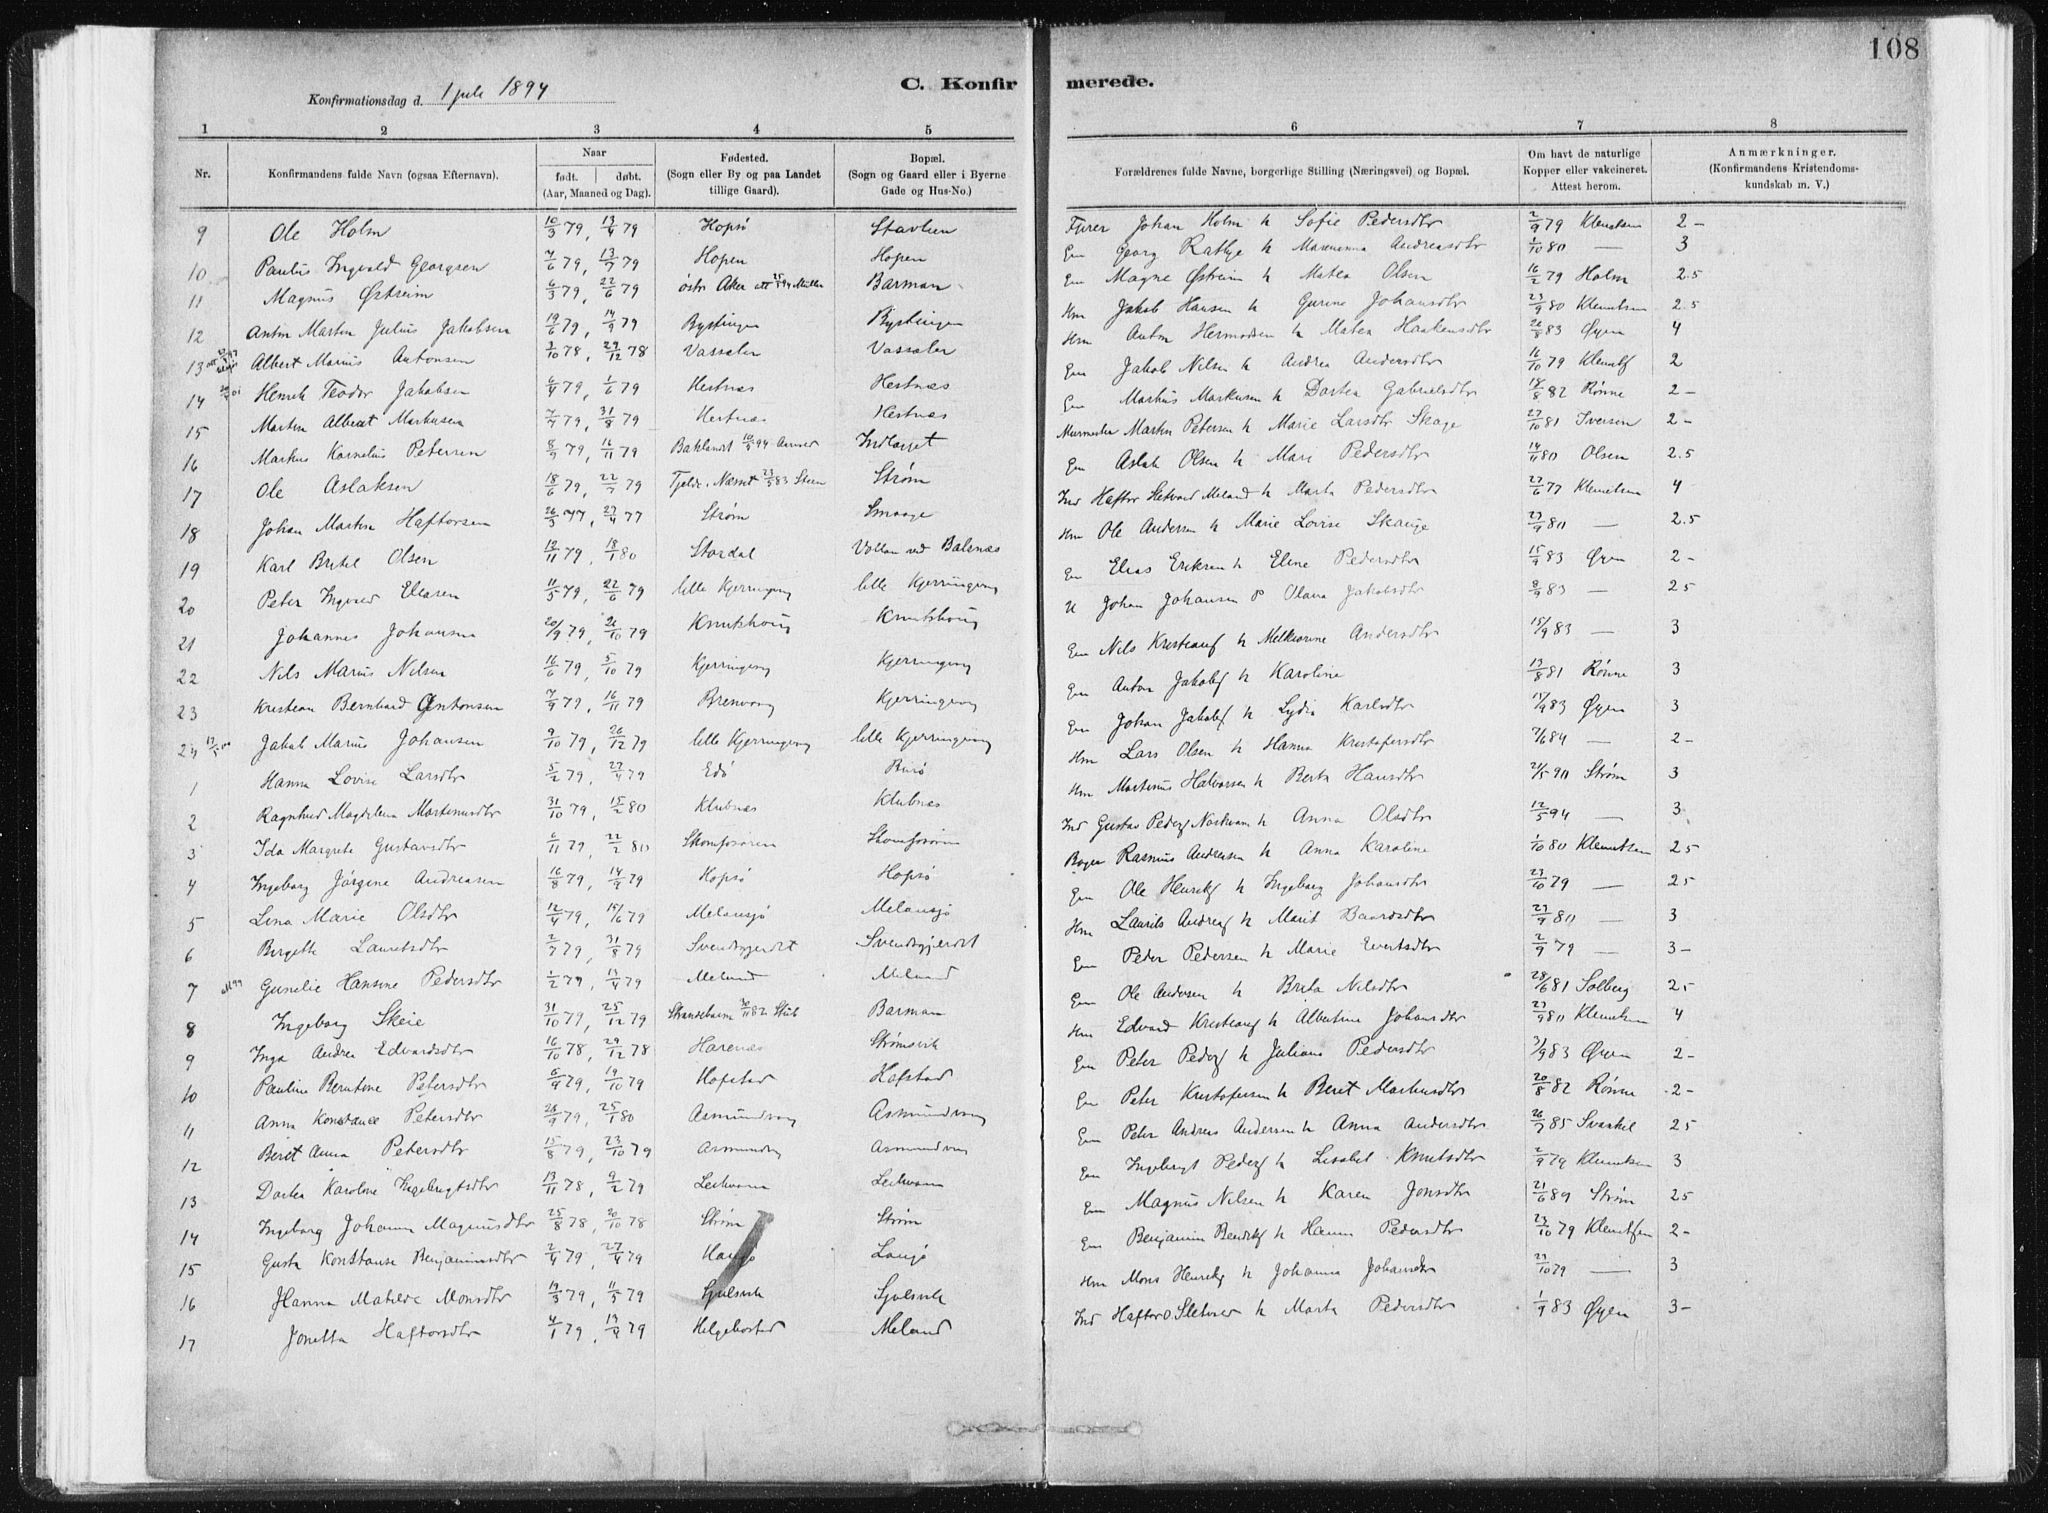 108
Konfirmationsdag d. 1 juli 1894
C. Konfirmerede.
1 2 3 4 5 6 7 8
Nr. Konfirmandens fulde Navn (ogsaa Efternavn). Naar født. døbt. (Aar, Maaned og Dag). Fødested. (Sogn eller By og paa Landet tillige Gaard). Bopæl. (Sogn og Gaard eller i Byerne Gade og Hus-No.) Forældrenes fulde Navne, borgerlige Stilling (Næringsvei) og Bopæl. Om havt de naturlige Kopper eller vakcineret. Attest herom. Anmærkninger. (Konfirmandens Kristendomskundskab m. V.)
9 Ole Holm 10/3 79, 13/4 79 Hopsø Johan Holm h Sofie Pedersdtr 2/9 79 Klemetsen 2-
10 Paulus Ingvald Georgsen 7/6 79, 13/7 79 Hopen Hopen Gm Georg Rathje h Andreasdtr 1/10 80 — 3
11 Magnus Østreim 6/3 79, 22/6 79 østr Aker Barman Gm Magne Østreim h Matea Olsen 16/2 79 Holm 2.5
12 Anton Martin Julius Jakobsen 19/6 79, 14/9 79 Bystingen Bystingen Hm Jakob Hansen h Gurine Johansdtr 23/9 80 Klemetsen 2.5
13 Albert Marius Antonsen 3/10 78, 29/12 78 Vassaler Vassaler Hm Anton Hermodsen h Matea Haakensdtr 26/8 83 Øyen 4
14 Henrik Teodor Jakobsen 6/4 79, 1/6 79 Hestnæs Hestnæs Gm Jakob Nilsen h Andrea Andersdtr 16/10 79 2
15 Martin Albert Markusen 7/7 79, 31/8 79 Hestnæs Hestnæs Gm Markus Markusen h Dortea Gabrielsdtr 18/8 82 Rønne 2-
16 Markus Kornelius Petersen 8/9 79, 16/11 79 Baklandet Murmester Martin Petersen h Marie Larsdtr Skage 27/10 81 Iversen 2-
17 Ole Aslaksen 18/6 79, 22/7 79 Strøm Gm Aslak Olsen h Mari Pedersdtr 14/11 80 Olsen 2.5
18 Johan Martin Haftorsen 26/3 77, 27/4 77 Strøm Smaage Ind Haftor Meland h Marta Pedersdtr 27/6 77 Klemetsen 4
19 Karl Bertel Olsen 12/11 79, 18/1 80 Stordal Vollan ved Balsnæs Hm Ole Andersen h Marie Lovise Skauge 23/9 80 — 2.5
20 Peter Ingvard Eliasen 11/5 79, 22/6 79 lille Kjerringvog lille Kjerringvog Gm Elias Eriksen h Eline Pedersdtr 15/9 83 Øyen 2-
21 Johannes Johansen 20/9 79, 26/10 79 Knutshoug Knutshoug U Johan Johansen P Olava Jakobsdtr 8/9 83 — 25
22 Nils Marius Nilsen 16/6 79, 5/10 79 Kjerringvog Kjerringvog Gm Nils Kristiansf h Melkiorine Andersdtr 15/9 83 — 3
23 Kristian Bernhard Antonsen 7/9 79, 16/11 79 Brenvog Kjerringvog Gm Anton Jakobsf h Karoline 13/8 81 Rønne 3
24 Jakob Marius Johansen 9/10 79, 26/12 79 lille Kjerringvog lille Kjerringvog Gm Johan Jakobsf h Lydia Karlsdtr 17/9 83 Øyen 3
1 Hanna Lovise Larsdtr 5/2 79, 27/4 79 Edø Burø Hm Lars Olsen h Hanna Kristofersdtr 7/6 84 — 2-
2 Ragnhild Magdalena Martinusdtr 31/10 79, 15/2 80 Klubnæs Klubnæs Hm Martinus Halvorsen h Berta Hansdtr 21/5 90 Strøm 3
3 Ida Margrete Gustavsdtr 6/11 79, 22/2 80 Skomsøren Skomsøren Ind Gustav Pedersf h Anna Olsdtr 12/5 94 — 3
4 Ingeborg Jørgine Andreasen 16/8 79, 14/9 79 Hopsø Hopsø Rasmus Andreasen h Anna Karoline 1/10 80 Klemetsen 25
5 Lina Marie Olsdtr 12/4 79, 15/6 79 Melansjø Melansjø Gm Ole Henriksf h Ingeborg Johansdtr 23/10 79 — 25
6 Birgitte Lauritsdtr 2/7 79, 31/8 79 Svendsgjerdet Svendsgjerdet Hm Laurits Andreasf h Marit Baardsdtr 27/9 80 — 3
7 Gunelie Hansine Pedersdtr 1/2 79, 13/4 79 Meland Meland Gm Peder Pedersen h Marie Evertsdtr 2/9 79 — 3-
8 Ingeborg Skeie 31/10 79, 25/12 79 Strandebarm Barman Gm Ole Andersen h Brita Nilsdtr 28/6 81 Solberg 25
9 Inga Andrea Edvardsdtr 16/10 78, 29/12 78 Harenæs Strømsvik Hm Edvard Kristiansf h Albertine Johansdtr 27/9 80 Klemetsen 4
10 Pauline Berntine Petersdtr 6/9 79, 19/10 79 Hofstad Hofstad Gm Peter Pedersf h Juliane Pedersdtr 3/9 83 Øyen 2-
11 Anna Konstanse Petersdtr 26/9 79, 25/1 80 Asmundvog Asmundvog Gm Peter Kristofersen h Beret Markusdtr 20/8 82 Rønne 2-
12 Beret Anna Petersdtr 15/8 79, 23/10 79 Asmundvog Asmundvog Gm Peter Andreas Andersen h Anna Andersdtr 26/7 85 Svarkel 25
13 Dortea Karoline Ingebrigtsdtr 13/11 78, 9/2 79 Leikvam Leikvam Gm Ingebrigt Pedersf h Lisabet Knutsdtr 2/9 79 Klemetsen 3
14 Ingeborg Johanna Magnusdtr 25/8 78, 20/10 78 Strøm Strøm Gm Magnus Nilsen h Karen Jonsdtr 21/6 89 Strøm 25
15 Gusta Konstanse Benjaminsdtr 2/4 79, 27/4 79 Haugjø Laugjø Gm Benjamin Bendiksf h Hanna Pedersdtr 23/10 79 Klemetsen 2-
16 Hanna Matilde Monsdtr 19/3 79, 11/5 79 Gjulsvik Gjulsvik Hm Mons Henriksf h Johanna Johansdtr 23/10 79 — 3
17 Jonetta Haftorsdtr 4/1 79, 13/4 79 Helgebostad Meland Ind Haftor Sletvold h Marta Pedersdtr 1/9 83 Øyen 3-